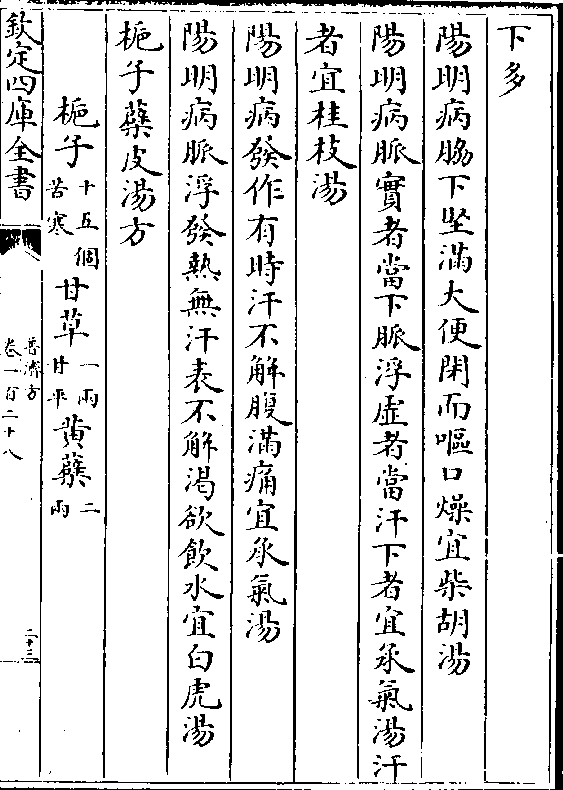 下多
陽明病脇下堅滿大便閉而嘔口燥宜柴胡湯
陽明病脈實者當下脈浮虛者當汗下者宜承氣湯汗
者宜桂枝湯
陽明病發作有時汗不解腹滿痛宜承氣湯
陽明病脈浮發熱無汗表不解渴欲飲水宜白虎湯
梔子蘗皮湯方
梔子十五個苦寒 甘草一兩甘平 黄蘗二兩
欽定四庫全書
普濟方
卷一百二十八
二十三